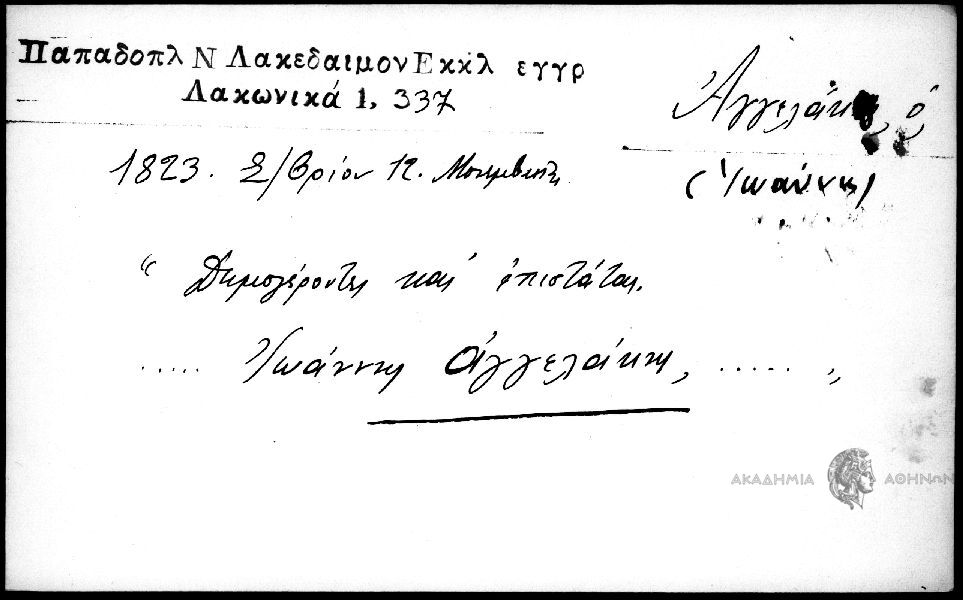 Παπαδοπλ Ν Λακεδαιμον Εκκλ εγγρ
Λακωνικά 1, 337
Ἀγγελάκης ὁ
(Ἰωάννης)
1823. Σ/βρίου 12.
“ Δημογέροντες καὶ ἐπιστάται.
..... Ἰωάννης ἀγγελάκης, ..... „
ΑΚΑΔΗΜΙΑ ΑΘΗΝΩΝ